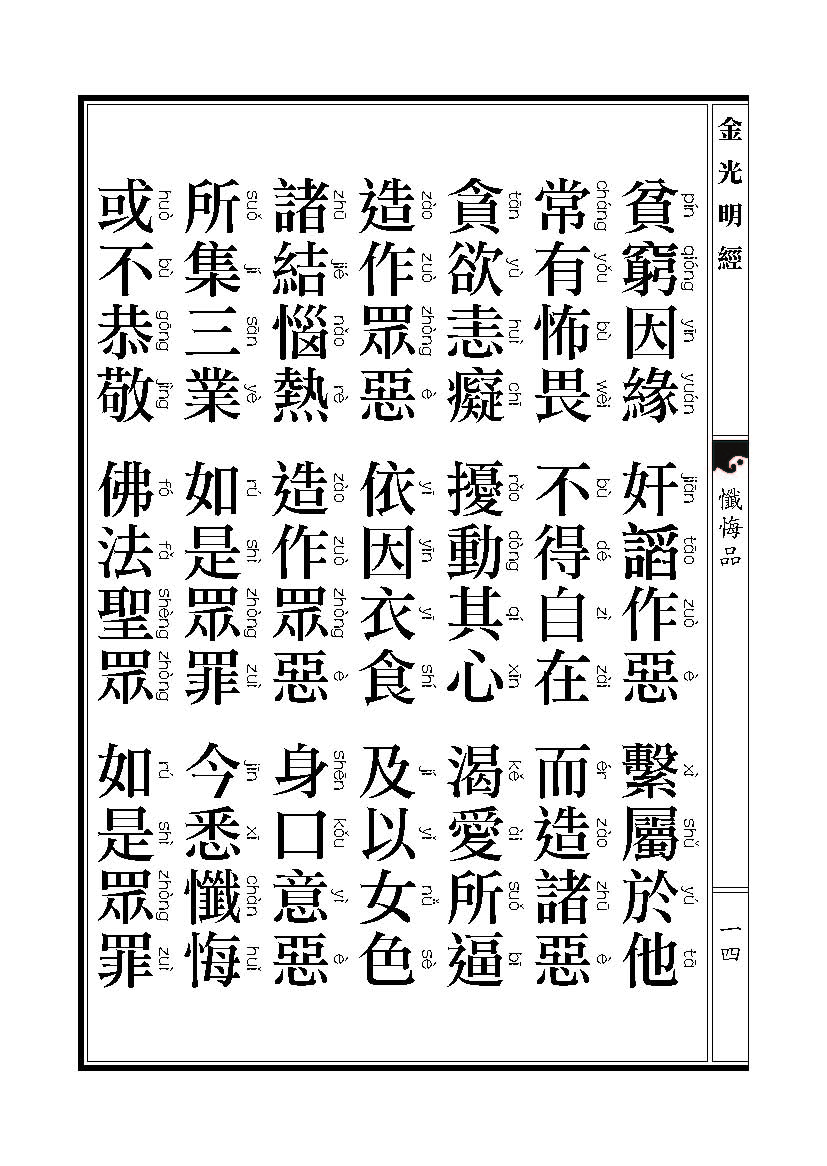 金光明經
懺悔品
一四
貧窮因緣 奸謟作惡 繫屬於他
pín qióng yīn yuán jiān tāo zuò è xì shǔ yú tā
常有怖畏 不得自在 而造諸惡
cháng yǒu bù wèi bù dé zì zài ér zào zhū è
貪欲恚癡 擾動其心 渴愛所逼
tān yù huì chī rǎo dòng qí xīn kě ài suǒ bī
造作眾惡 依因衣食 及以女色
zào zuò zhòng è yī yīn yī shí jí yǐ nǚ sè
諸結惱熱 造作眾惡 身口意惡
zhū jié nǎo rè zào zuò zhòng è shēn kǒu yì è
所集三業 如是眾罪 今悉懺悔
suǒ jí sān yè rú shì zhòng zuì jīn xī chàn huǐ
或不恭敬 佛法聖眾 如是眾罪
huò bù gōng jìng fó fǎ shèng zhòng rú shì zhòng zuì